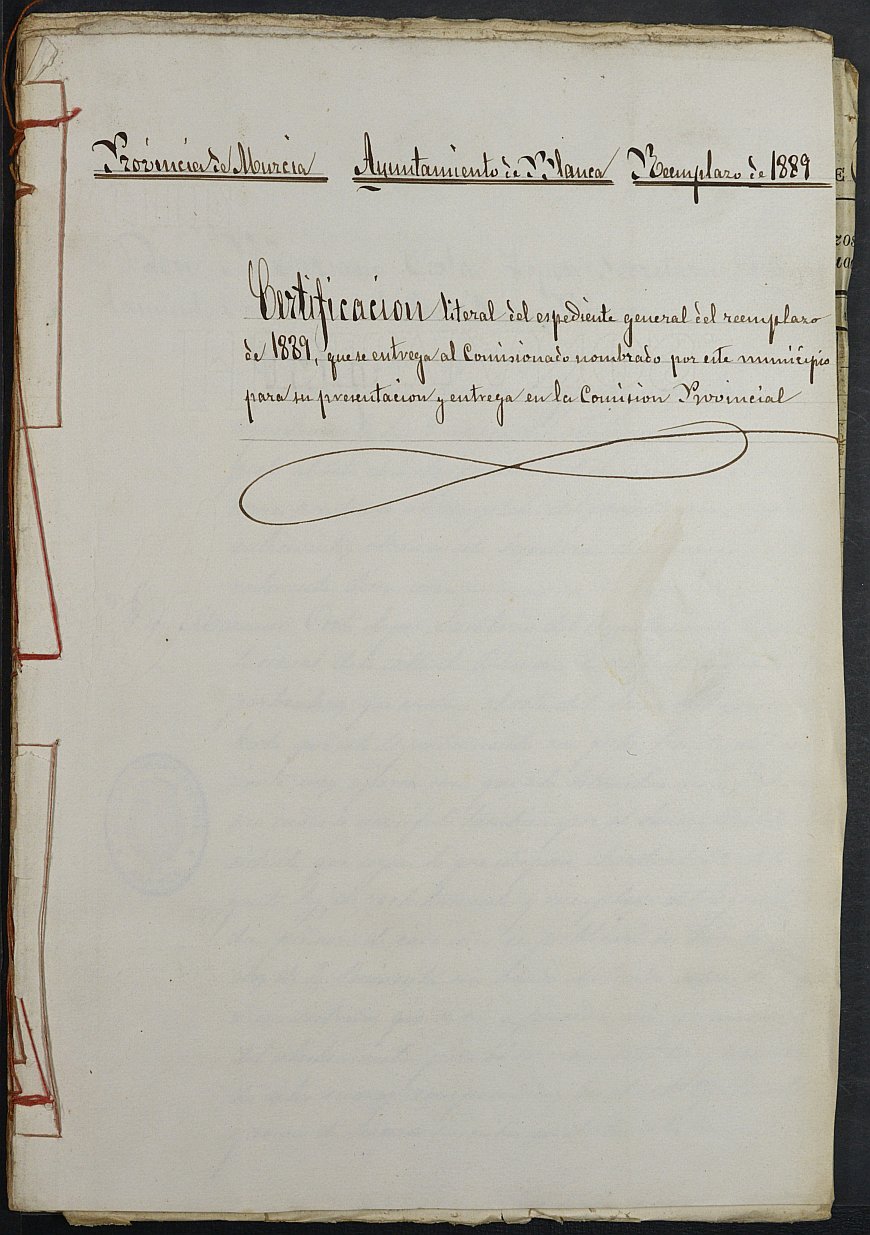 Provincia de Murcia Ayuntamiento de Blanca Reemplazo de 1889
Certificacion literal del espediente general del reemplazo
de 1889, que se entrega al Comisionado nombrado por este municipio
para su presentacion y entrega en la Comision Provincial